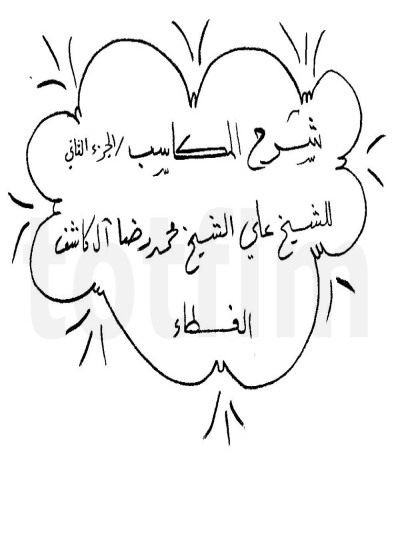 شرح المكاسب / الجزء الثاني
للشيخ علي الشيخ محمد رضا آل كاشف
الغطاء
totfim